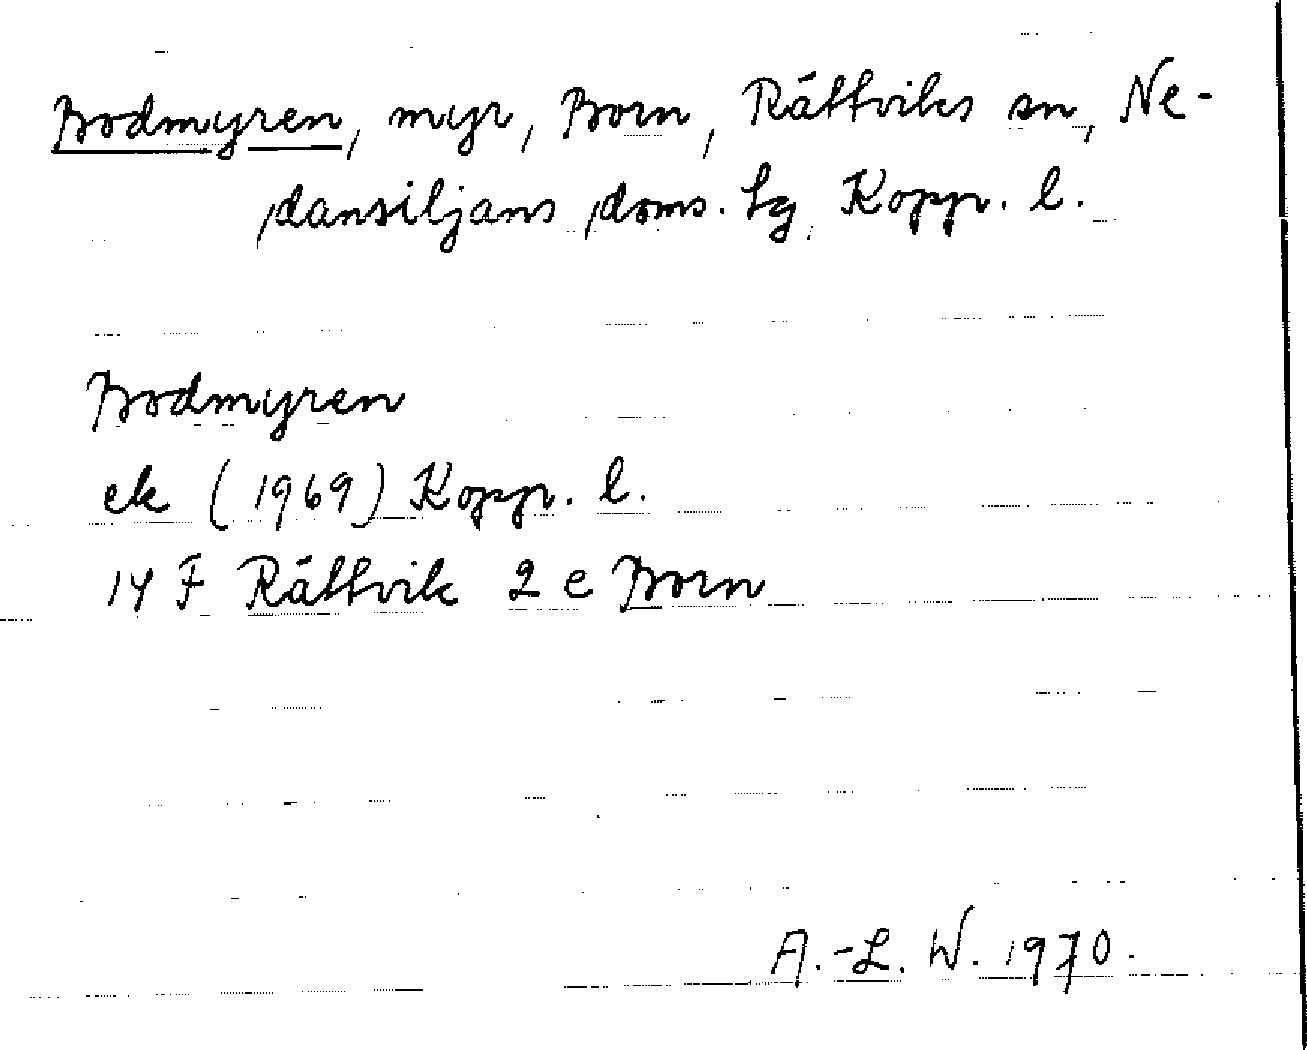 Bodmyren, myr, Born, Rättviks sn, Ne-
dansiljans doms. tg, Kopp. l.
Bodmyren
ek (1969) Kopp. l.
14 F Rättvik 2 e Born
A.-L. W. 1970.